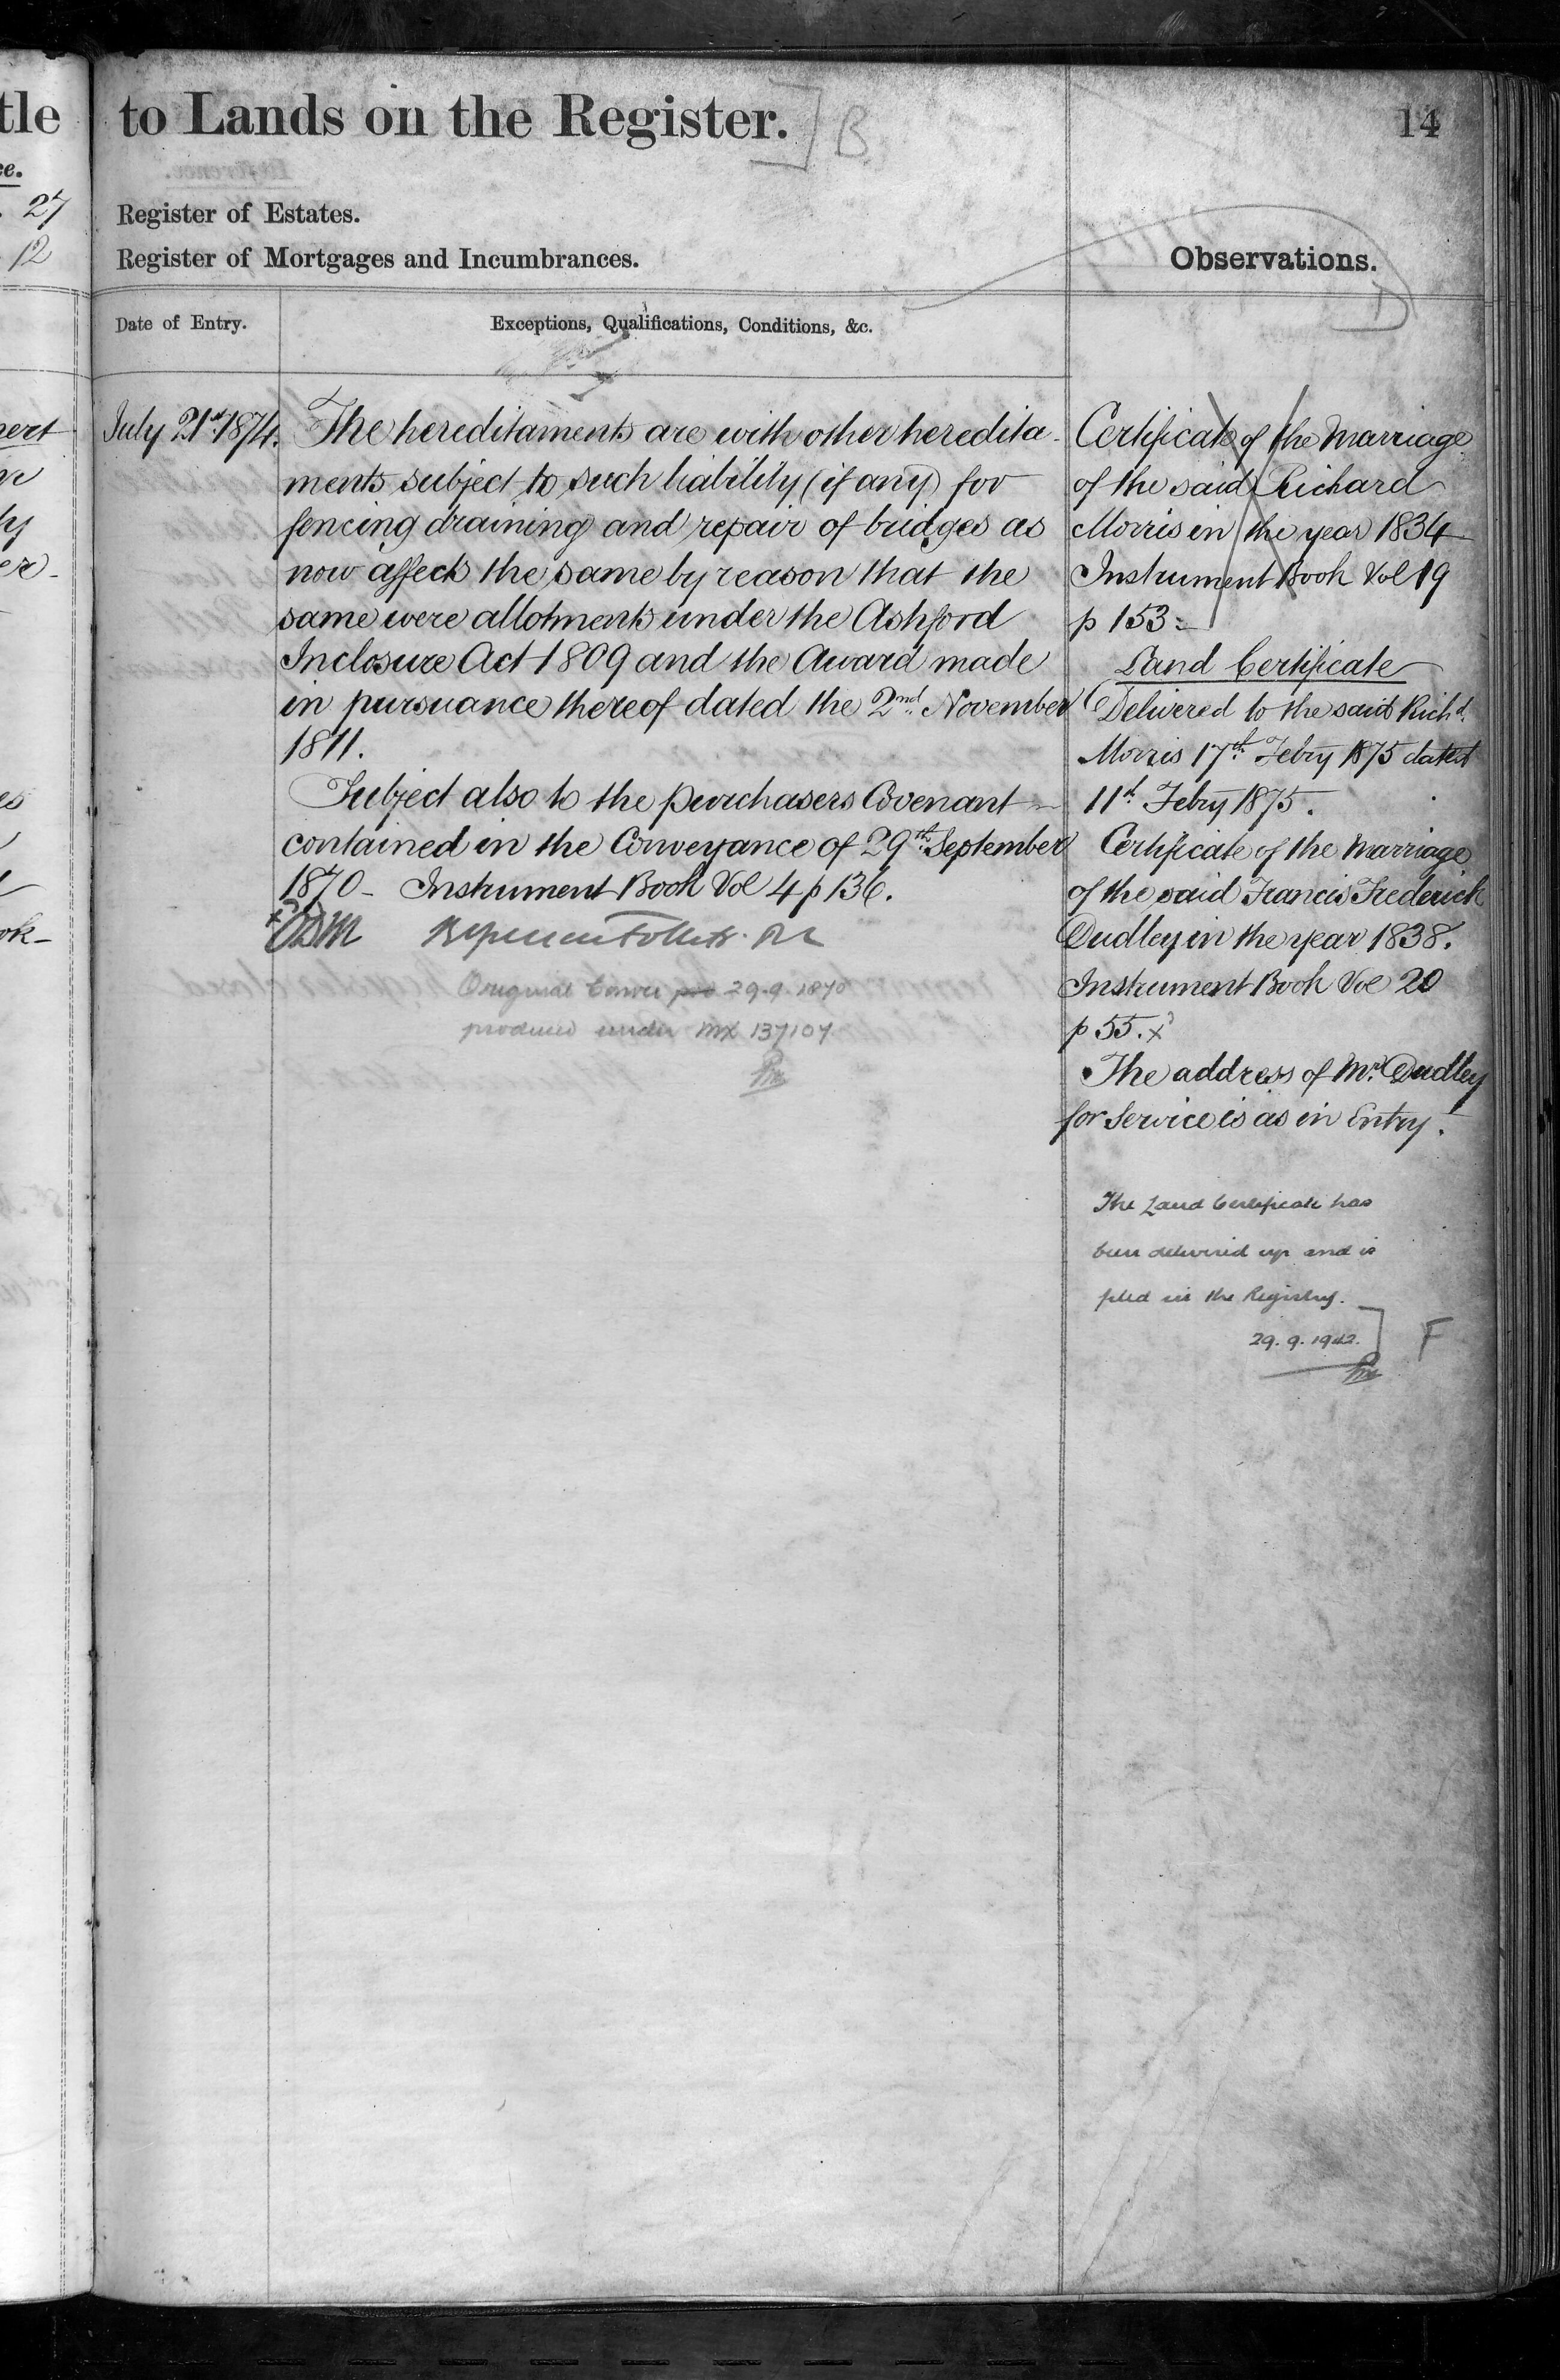 tle
to Lands on the Register. B
14
ce.
27
12
Register of Estates.
Register of Mortgages and Incumbrances.
Observations.
D
Date of Entry.
Exceptions, Qualifications, Conditions, &c.
July 21st 1874.
The hereditaments are with other heredita-
ments subject to such liability (if any) for
fencing draining and repair of bridges as
now affects the same by reason that the
same were allotments under the Ashford
Inclosure Act 1809 and the Award made
in pursuance thereof dated the 2nd November
1811.
Subject also to the purchasers Covenant
contained in the Conveyance of 29th September
1870 - Instrument Book Vol 4 p 136.
Follett
Original Convce 29.9.1870
produced under MX 137107
Certificate of the Marriage
of the said Richard
Morris in the year 1834
Instrument Book Vol 19
p 153
Land Certificate
Delivered to the said Richd.
Morris 17th Febry 1875 dated
11th Febry 1875.
Certificate of the Marriage
of the said Francis Frederick
Dudley in the year 1838.
Instrument Book Vol 20
p 55. x
The address of Mr. Dudley
for Service is as in Entry.
The Land Certificate has
been delivered up and is
filed in the Registry.
29.9.1942.
F